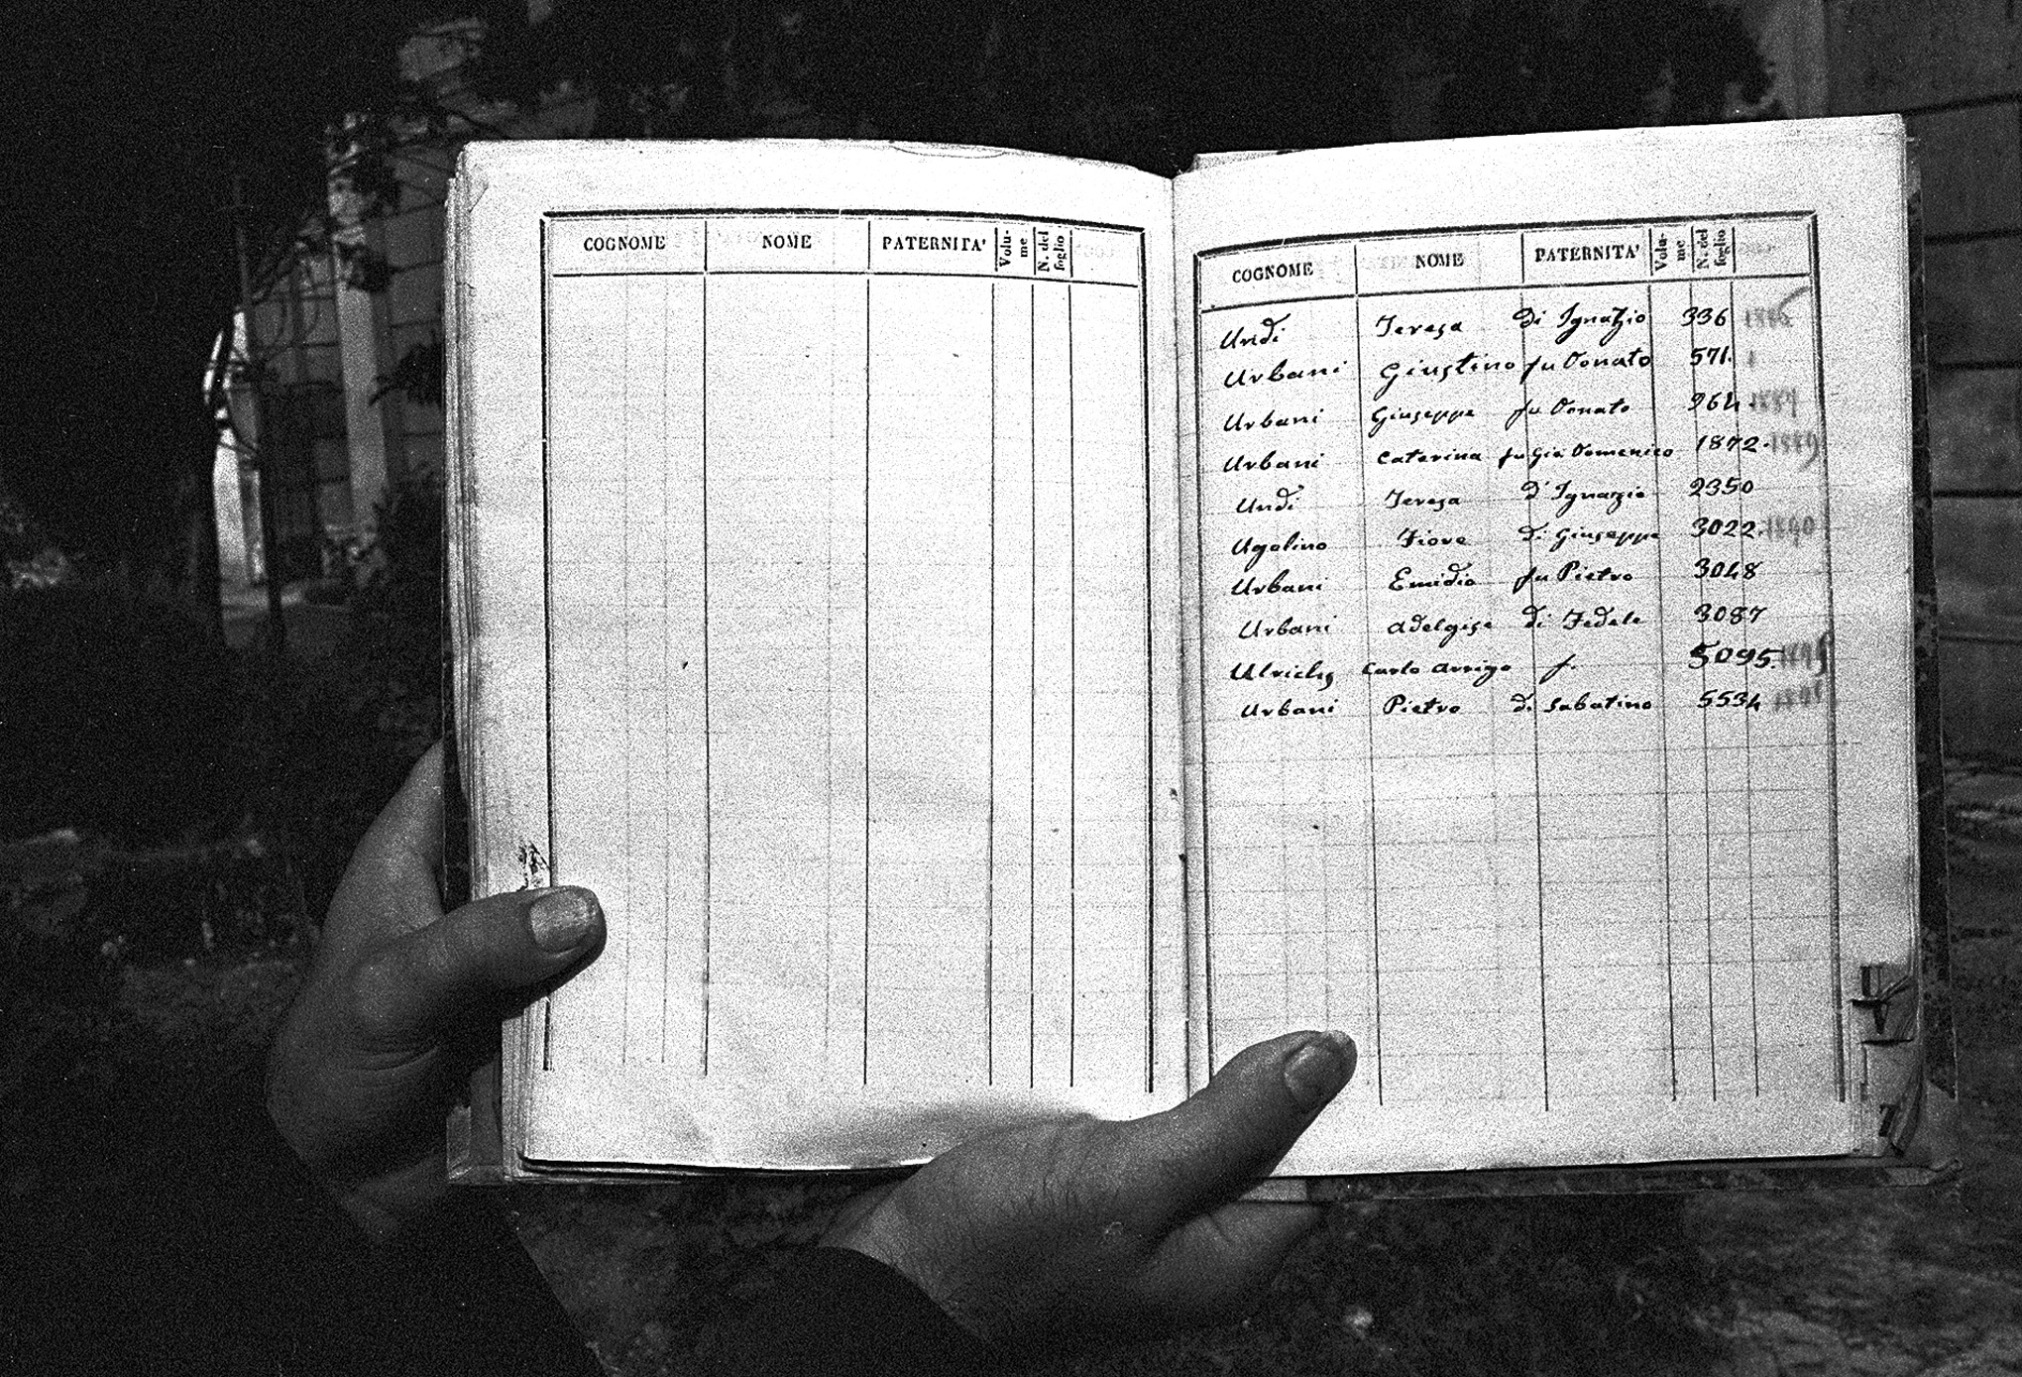 COGNOME NOME PATERNITA' Volu-me N. del foglio
COGNOME NOME PATERNITA' Volu-me N. del foglio
Undi Teresa di Ignazio 336 1886
Urbani Giustino fu Donato 571
Urbani Giuseppe fu Donato 964 1887
Urbani Caterina fu Gio: Domenico 1872 1889
Undi Teresa d'Ignazio 2350
Ugolino Fiore di Giuseppe 3022 1890
Urbani Emidio fu Pietro 3048
Urbani Adelgisa di Fedele 3087
Ulrichs Carlo Arrigo f. 5095 1895
Urbani Pietro di Sabatino 5534